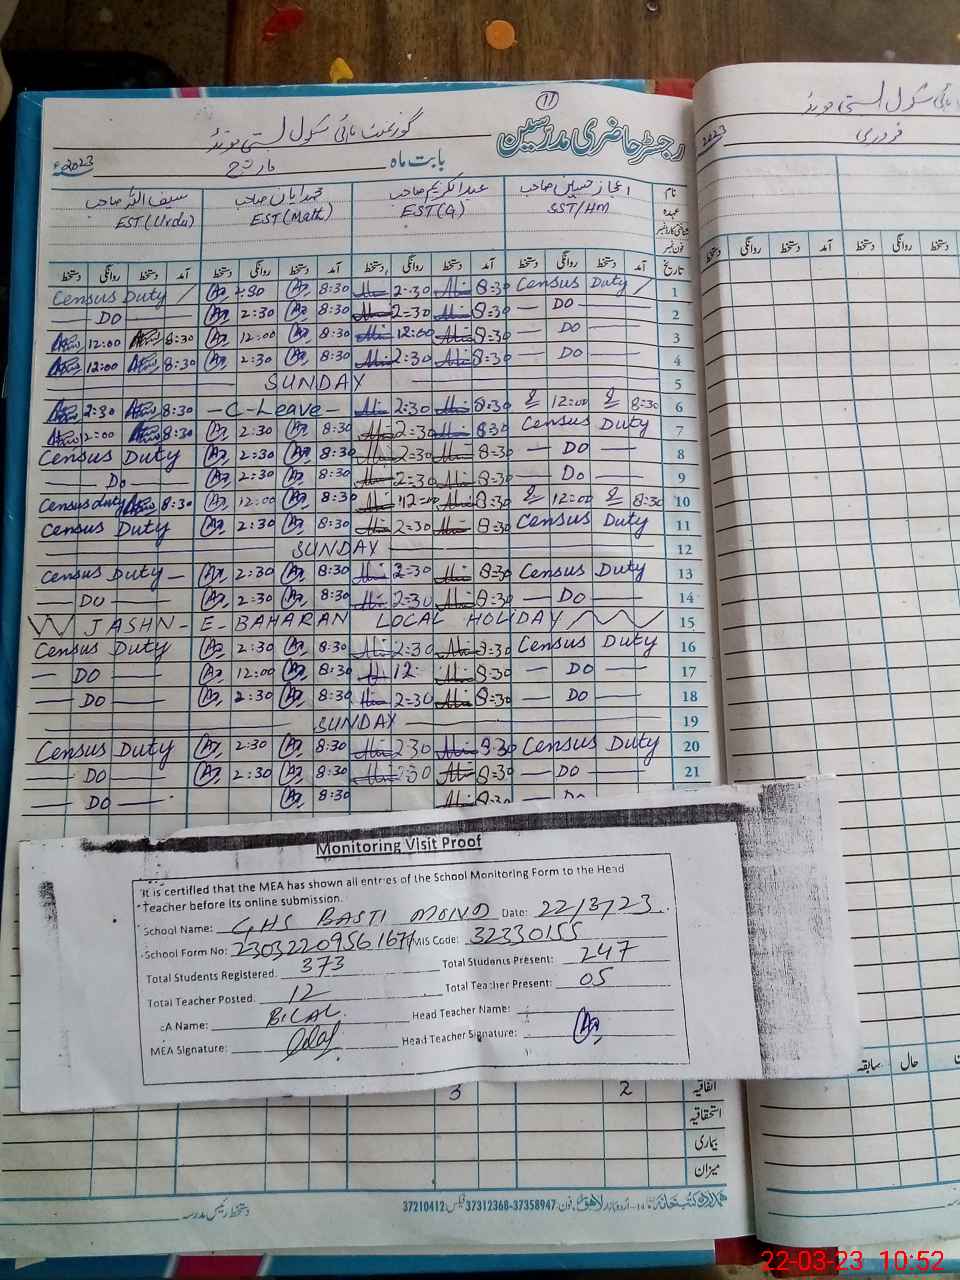 11
رجسٹر حاضری مدرسین
گورنمنٹ ہائی سکول بستی
بابت ماہ مارچ 2023ء
نام اعجاز حسین صاحب عبدالکریم صاحب محمد ایان صاحب سیف اللہ صاحب
عہدہ SST/HM EST(G) EST(Math) EST(Urdu)
شناختی کارڈ نمبر
فون نمبر
تاریخ آمد دستخط روانگی دستخط آمد دستخط روانگی دستخط آمد دستخط روانگی دستخط آمد دستخط روانگی دستخط
Census Duty 2:30 8:30 2:30 8:30 Census Duty 1
DO 2:30 8:30 2:30 8:30 DO 2
12:00 8:30 12:00 8:30 12:00 8:30 DO 3
12:00 8:30 2:30 8:30 2:30 8:30 DO 4
SUNDAY 5
2:30 8:30 C-Leave 2:30 8:30 12:00 8:30 6
12:00 8:30 2:30 8:30 2:30 8:30 Census Duty 7
Census Duty 2:30 8:30 2:30 8:30 DO 8
Do 2:30 8:30 2:30 8:30 DO 9
Census duty 8:30 12:00 8:30 12:00 8:30 12:00 8:30 10
Census Duty 2:30 8:30 2:30 8:30 Census Duty 11
SUNDAY 12
Census Duty 2:30 8:30 2:30 8:30 Census Duty 13
DO 2:30 8:30 2:30 8:30 DO 14
JASHN-E-BAHARAN LOCAL HOLIDAY 15
Census Duty 2:30 8:30 2:30 8:30 Census Duty 16
DO 12:00 8:30 12: 8:30 DO 17
DO 2:30 8:30 2:30 8:30 DO 18
SUNDAY 19
Census Duty 2:30 8:30 2:30 8:30 Census Duty 20
DO 2:30 8:30 2:30 8:30 DO 21
DO 8:30 8:30 DO
Monitoring Visit Proof
It is certified that the MEA has shown all entries of the School Monitoring Form to the Head
Teacher before its online submission.
School Name: GHS BASTI MOIVD Date: 22/3/23
School Form No: MIS Code: 32330155
Total Students Registered. 373 Total Students Present: 247
Total Teacher Posted: 12 Total Teacher Present: 05
EA Name: BILAL Head Teacher Name:
MEA Signature: Head Teacher Signature:
اتفاقیہ 2 3
استحقاقیہ
بیماری
میزان
37210412 فیکس: 37312368-37358947 فون:
دستخط رئیس مدرسہ
2023
فروری
آمد دستخط روانگی دستخط
حال سابقہ
22-03-23 10:52